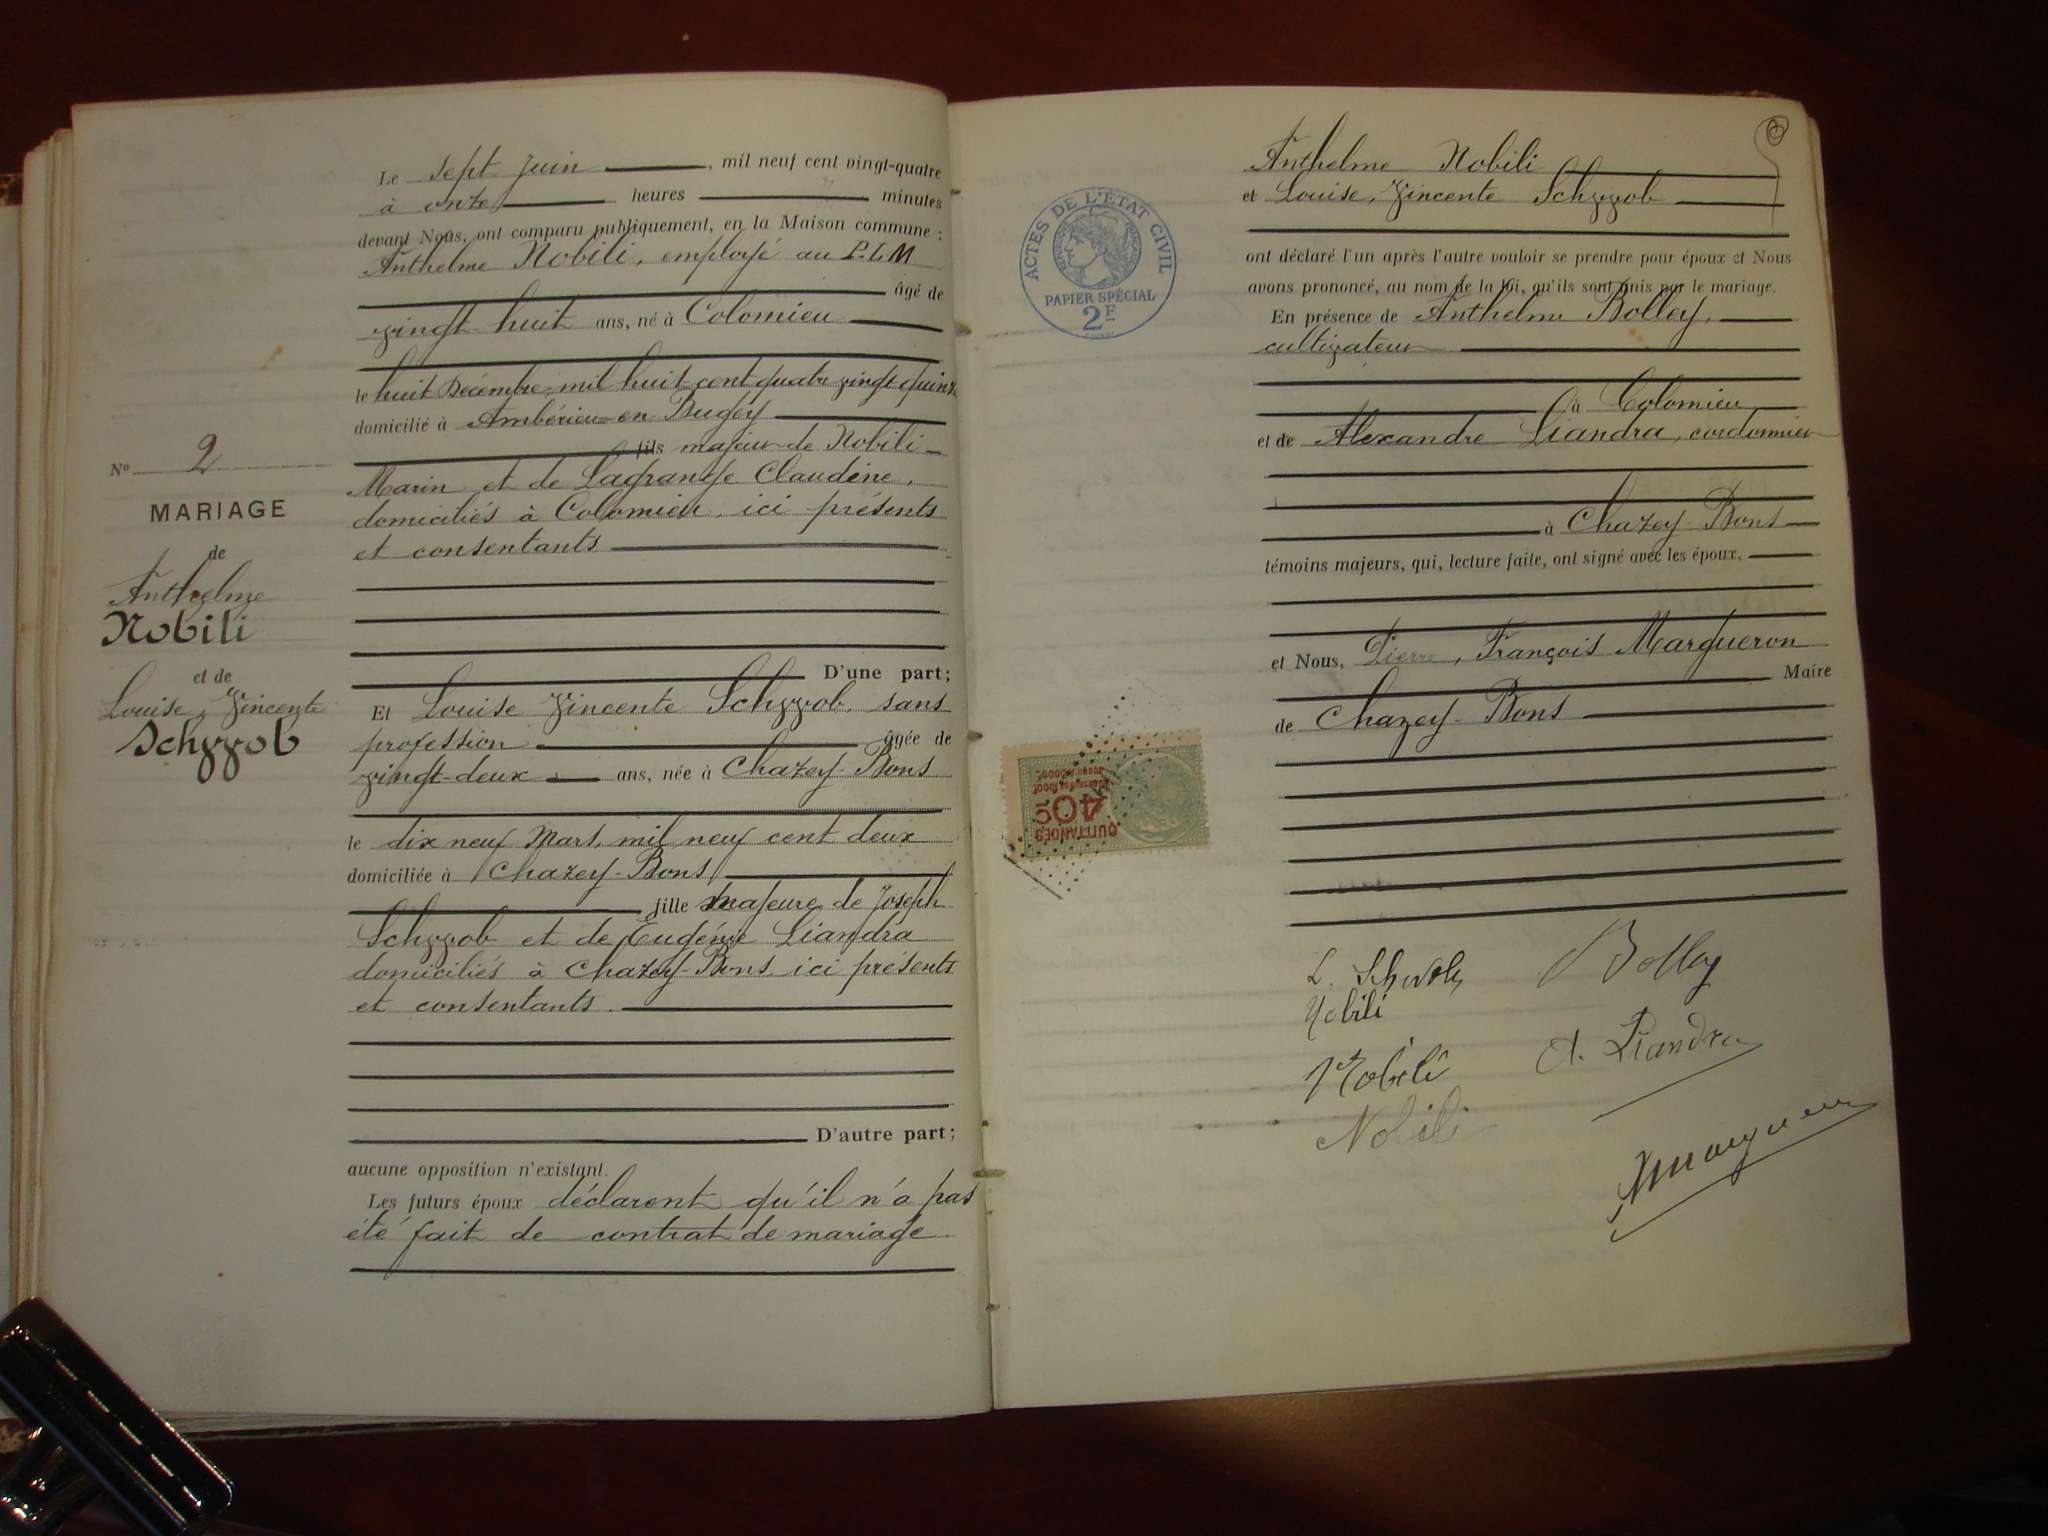 Le sept juin, mil neuf cent vingt-quatre
à onze heures minutes
devant Nous, ont comparu publiquement, en la Maison commune :
Anthelme Nobili, employé au P.L.M
âgé de
vingt huit ans, né à Colomieu
le huit Décembre, mil huit cent quatre vingt quinze
domicilié à Ambérieu-en Bugey
fils majeur de Nobili
Marin et de Lagrange Claudine,
domiciliés à Colomieu, ici présents
et consentants
D'une part;
Et Louise Vincente Schvvob, sans
profession âgée de
vingt-deux ans, née à Chazey-Bons
le dix neuf Mars, mil neuf cent deux
domiciliée à Chazey-Bons
fille majeure de Joseph
Schvvob et de Eugénie Liandra
domiciliés à Chazey-Bons ici présents
et consentants.
D'autre part;
aucune opposition n'existant.
Les futurs époux déclarent qu'il n'a pas
été fait de contrat de mariage
No 2
MARIAGE
de
Anthelme
Nobili
et de
Louise, Vincente
Schvvob
Anthelme Nobili
et Louise, Vincente Schvvob
ont déclaré l'un après l'autre vouloir se prendre pour époux et Nous
avons prononcé, au nom de la loi, qu'ils sont unis par le mariage.
En présence de Anthelme Bolley,
cultivateur
à Colomieu
et de Alexandre Liandra, cordonnier
à Chazey-Bons
témoins majeurs, qui, lecture faite, ont signé avec les époux,
et Nous, Pierre, François Margueron
Maire
de Chazey-Bons
ACTES DE L'ÉTAT CIVIL
PAPIER SPÉCIAL
2F
QUITTANCES
40c
L. Schvob
Nobili
Nobili
Nobili
Bolley
A. Liandra